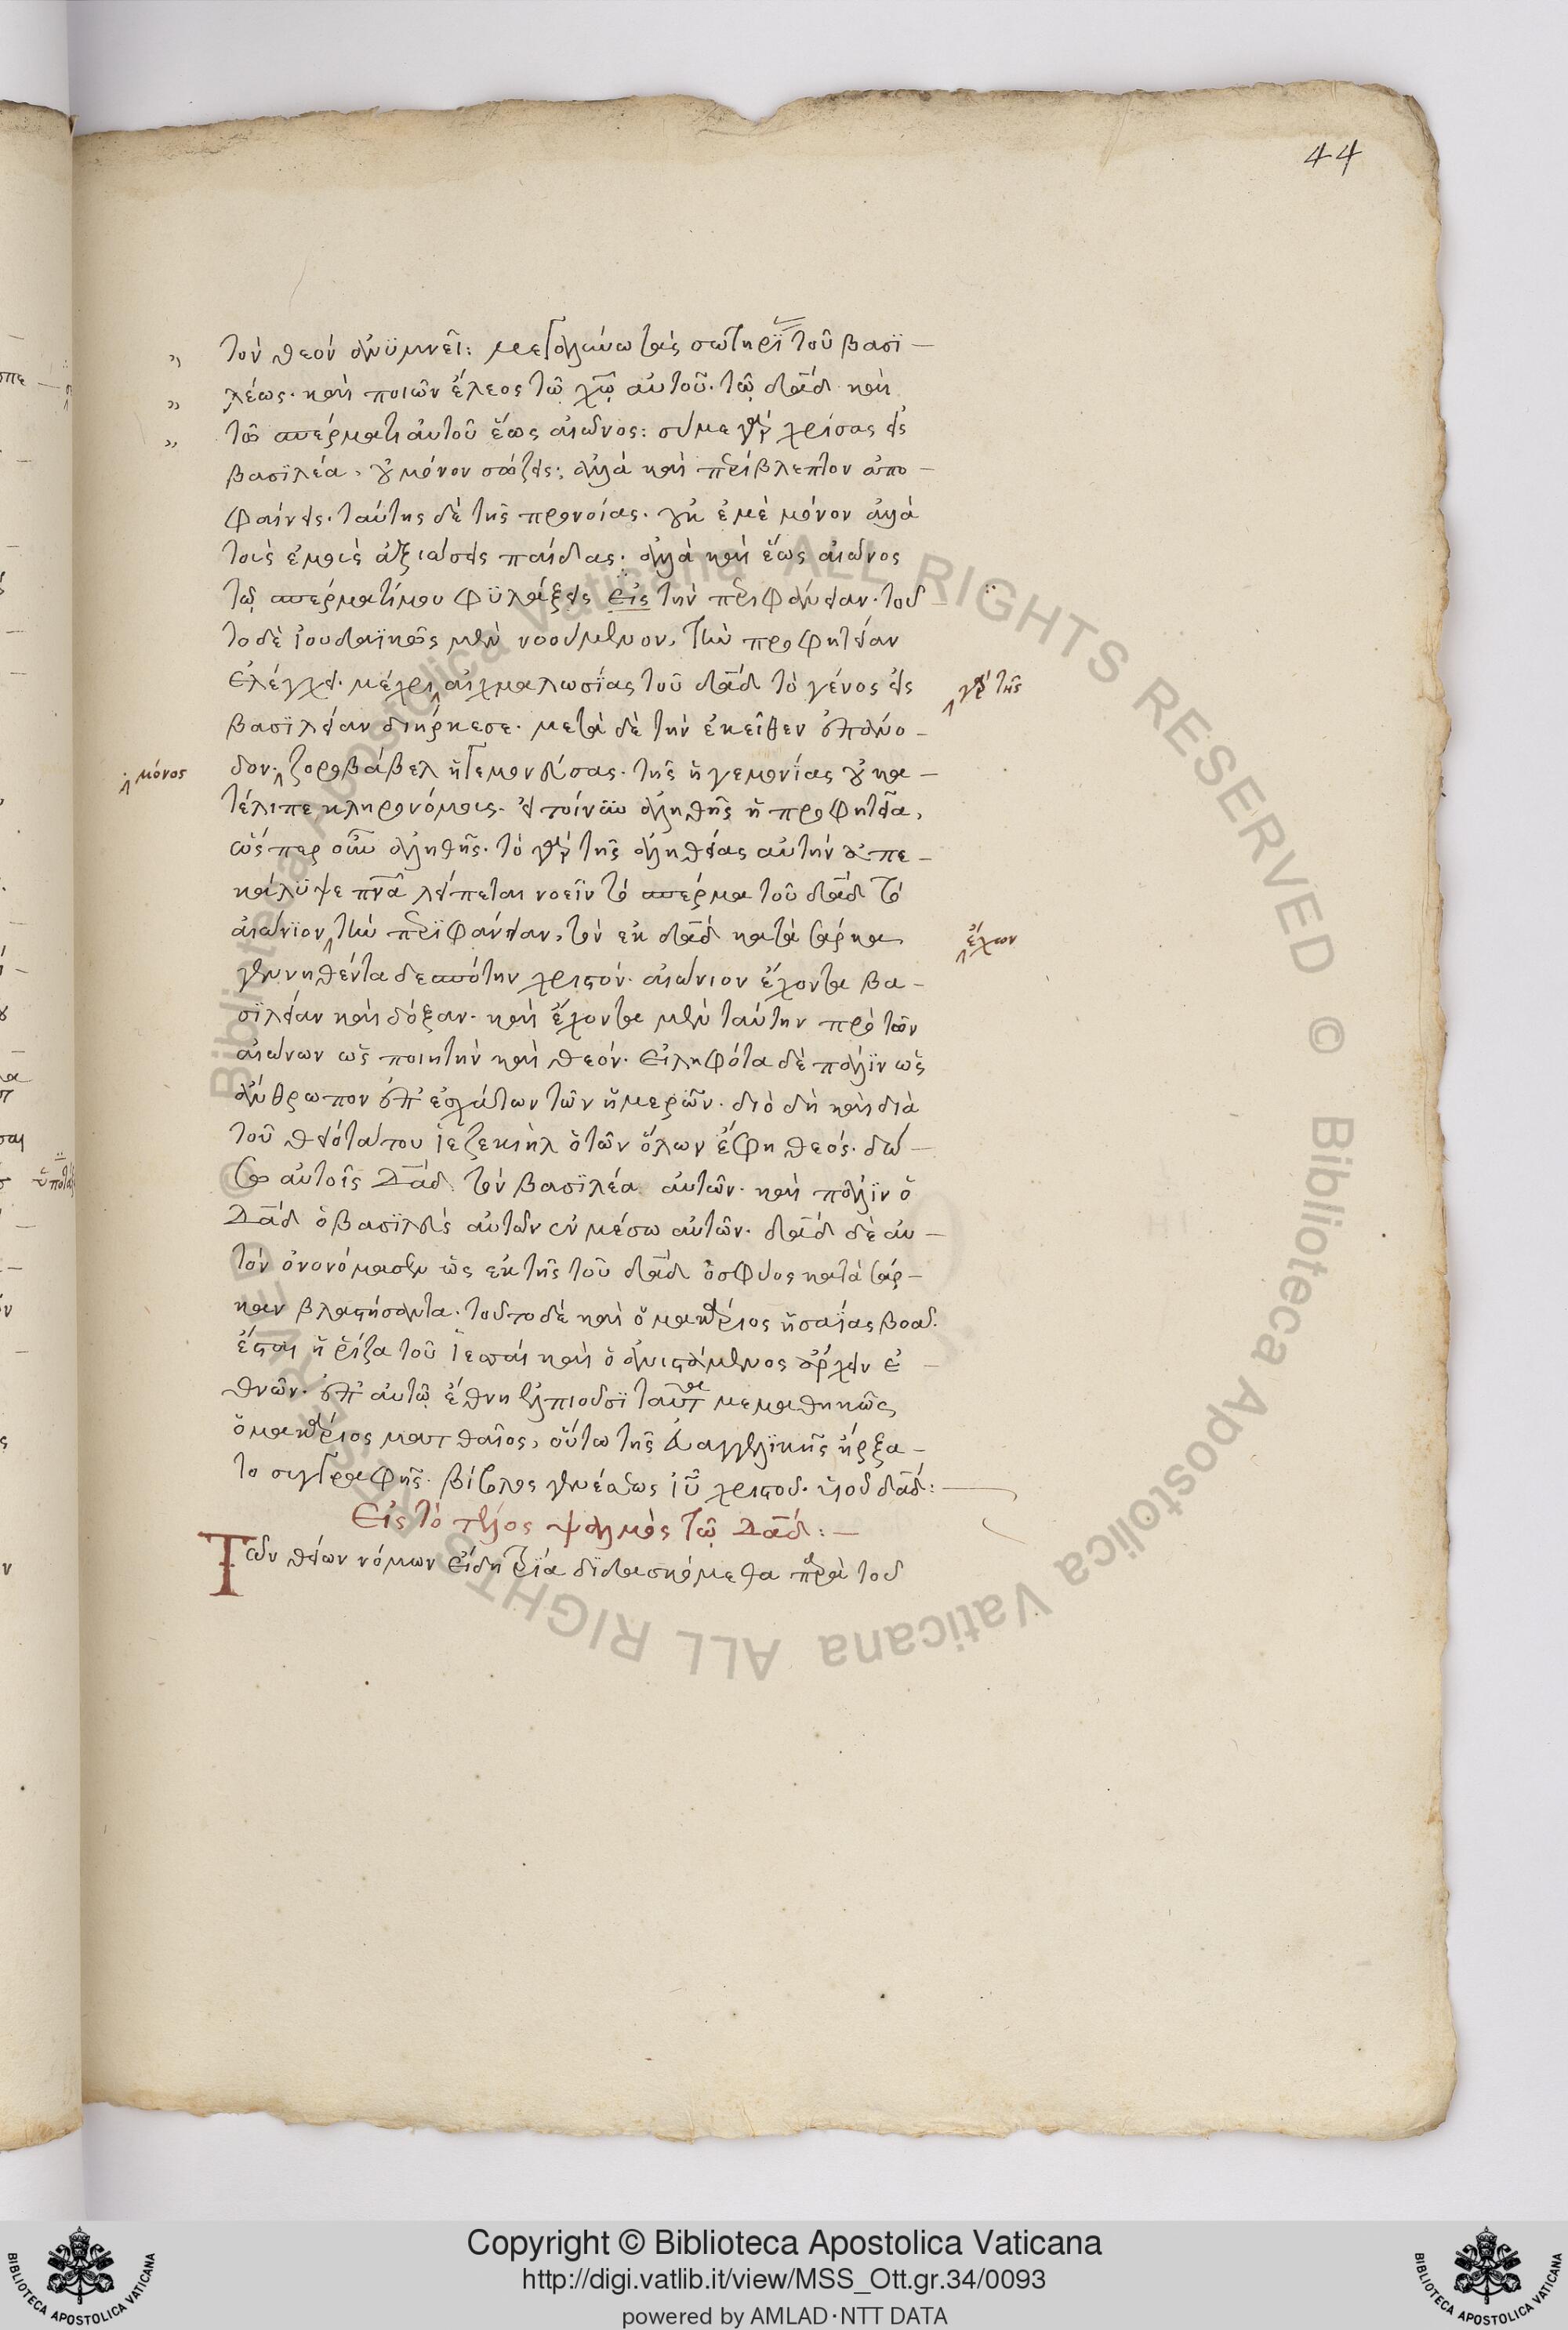 44
τὸν θεὸν ἀνϋμνεῖ: μεγαλύνω τὰς σωτηρί τοῦ βασϊ–
λέως· καὶ ποιῶν ἔλεος τῶ χῶ αὐτοῦ· τῶ δᾱδ καὶ
τῶ σπέρματι αὐτοῦ ἕως αἰῶνος: σύ με γὰρ χρίσας εἰς
βασϊλέα, οὐ μόνον σώζεις· ἀλλὰ καὶ περίβλεπτον ἀπο–
φαίνεις· ταύτης δὲ τῆς προνοίας· οὐκ ἐμὲ μόνον ἀλλὰ
τοὺς ἐμοὺς ἀξιώσεις παῖδας· ἀλλὰ καὶ ἕως αἰῶνος
τῶ σπέρματί μου φϋλάξεις εἰς τὴν περιφάνειαν· τοῦ
το δὲ ἰουδαϊκῶς μὲν νοούμενον, τὴν προφητείαν
ἐλέγχει· μέχρι αἰχμαλωσίας τοῦ δᾱδ τὸ γένος εἰς
γὰρ τῆς
βασϊλείαν διήρκεσε· μετὰ δὲ τὴν ἐκεῖθεν ἐπάνο–
μόνος
δον· ζοροβάβελ ἡγεμονεύσας· τῆς ἡγεμονίας οὐ κα–
τέλιπε κληρονόμους· εἰ τοίνυν ἀληθὴς ἡ προφητεία,
ὥσπερ οὖν ἀληθής· τὸ γὰρ τῆς ἀληθείας αὐτὴν ἀπε–
κάλϋψε πνᾱ λείπεται νοεῖν τὸ σπέρμα τοῦ δᾱδ τὸ
αἰώνϊον τὴν περϊφάνειαν, τὸν ἐκ δᾱδ κατὰ σάρκα
ἔχων
γεννηθέντα δεσπότην χριστόν· αἰώνιον ἔχοντα βα–
σϊλείαν καὶ δόξαν· καὶ ἔχοντα μὲν ταύτην πρὸ τῶν
αἰώνων ὡς ποιητὴν καὶ θεόν· εἰληφότα δὲ πάλϊν ὡς
ἄνθρωπον ἐπ' ἐσχάτων τῶν ἡμερῶν· διὸ δὴ καὶ διὰ
τοῦ θειοτάτου ἰεζεκιὴλ ὁ τῶν ὅλων ἔφη θεός· δώ–
σω αὐτοῖς δᾱδ τὸν βασϊλέα αὐτῶν· καὶ πάλϊν ὁ
δᾱδ ὁ βασϊλεὺς αὐτῶν ἐν μέσω αὐτῶν· δᾱδ δὲ αὐ–
τὸν ὀνονόμασεν ὡς ἐκ τῆς τοῦ δᾱδ ὀσφύος κατὰ σάρ–
καν βλαστήσαντα· τοῦτο δὲ καὶ ὁ μακάριος ἡσαΐας βοᾶ·
ἔσται ἡ ῥίζα τοῦ ἰεσσαὶ καὶ ὁ ἀνιστάμενος ἄρχειν ἐ–
θνῶν· ἐπ' αὐτῶ ἔθνη ἐλπιοῦσϊ ταῦτα μεμαθηκὼς
ὁ μακάριος ματθαῖος, οὕτω τῆς εὐαγγελϊκῆς ἤρξα–
το συγγραφῆς· βίβλος γενέσεως ἰῦ χριστοῦ· υἱοῦ δᾱδ:
Εἰς τὸ τέλος ψαλμὸς τῶ Δᾱδ:–
Τῶν θείων νόμων εἴδη τρία διδασκόμεθα παρὰ τοῦ
Copyright © Biblioteca Apostolica Vaticana
http://digi.vatlib.it/view/MSS_Ott.gr.34/0093
powered by AMLAD·NTT DATA